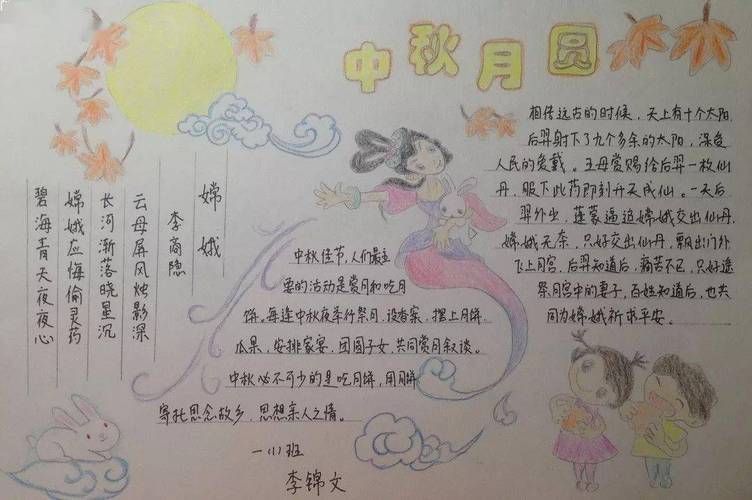 中秋月圆
嫦娥
李商隐
云母屏风烛影深
长河渐落晓星沉
嫦娥应悔偷灵药
碧海青天夜夜心
相传远古的时候，天上有十个太阳，
后羿射下了九个多余的太阳，深受
人民的爱戴。王母赏赐给后羿一枚仙
丹，服下此药即刻升天成仙。一天后
羿外出，蓬蒙逼迫嫦娥交出仙丹，
嫦娥无奈，只好交出仙丹，飘出门外
飞上月宫，后羿知道后，痛苦不已，只好遥
祭月宫中的妻子，百姓知道后，也共
同为嫦娥祈求平安。
中秋佳节，人们最主
要的活动是赏月和吃月
饼。每逢中秋夜举行祭月，设香案，摆上月饼
瓜果，安排家宴，团圆子女，共同赏月叙谈。
中秋必不可少的是吃月饼，用月饼
寄托思念故乡，思想亲人之情。
一(1)班
李锦文